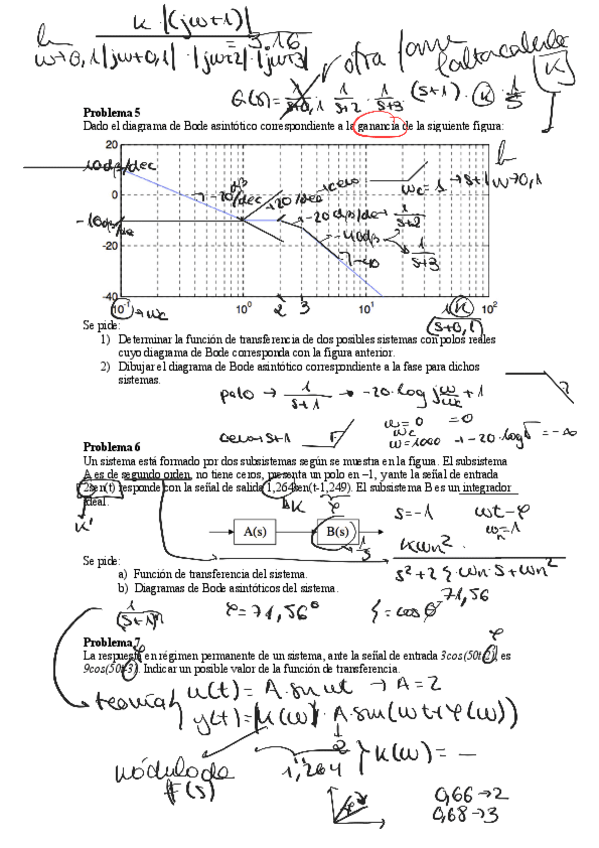 K |(jω+1)|
lim ω→0,1 |jω+0,1| · |jω+2| · |jω+3| = 3.16
otra forma
calcular K
G(s) = 1/(s+0,1) · 1/(s+2) · 1/(s+3) · (s+1) · K · 1/s
Problema 5
Dado el diagrama de Bode asintótico correspondiente a la ganancia de la siguiente figura:
20
0
-20
-40
10 dB/dec
-20 dB/dec
+20/dec
cero
ωc = 1 → s+1
ω→0,1
-20 dB/dec → 1/(s+2)
-40dB
1/(s+3)
-40
10⁻¹ → ωc
10⁰
2
3
10¹
10²
K/(s+0,1)
Se pide:
1) Determinar la función de transferencia de dos posibles sistemas con polos reales
cuyo diagrama de Bode corresponda con la figura anterior.
2) Dibujar el diagrama de Bode asintótico correspondiente a la fase para dichos
sistemas.
polo → 1/(s+1) → -20·log jω/ωc + 1
cero → s+1
ω=0 = 0
ωc
ω=1000
Problema 6
Un sistema está formado por dos subsistemas según se muestra en la figura. El subsistema
A es de segundo orden, no tiene ceros, presenta un polo en –1, y ante la señal de entrada
2sen(t) responde con la señal de salida 1,264sen(t-1,249). El subsistema B es un integrador
ideal.
K'
K
φ
A(s)
B(s)
1/s
s=-1
ωt-φ
ωn=1
Kωn²
s²+2ζ·ωn·s+ωn²
Se pide:
a) Función de transferencia del sistema.
b) Diagramas de Bode asintóticos del sistema.
φ=71,56°
ζ=cos θ
71,56
Problema 7
La respuesta en régimen permanente de un sistema, ante la señal de entrada 3cos(50t-2), es
9cos(50t-3). Indicar un posible valor de la función de transferencia.
φ
teoría
u(t) = A·sin ωt → A=2
y(t) = |K(ω)|·A sin(ωt+φ(ω))
2
módulo de
F(s)
1,264
K(ω) = —
0,66→2
0,68→3